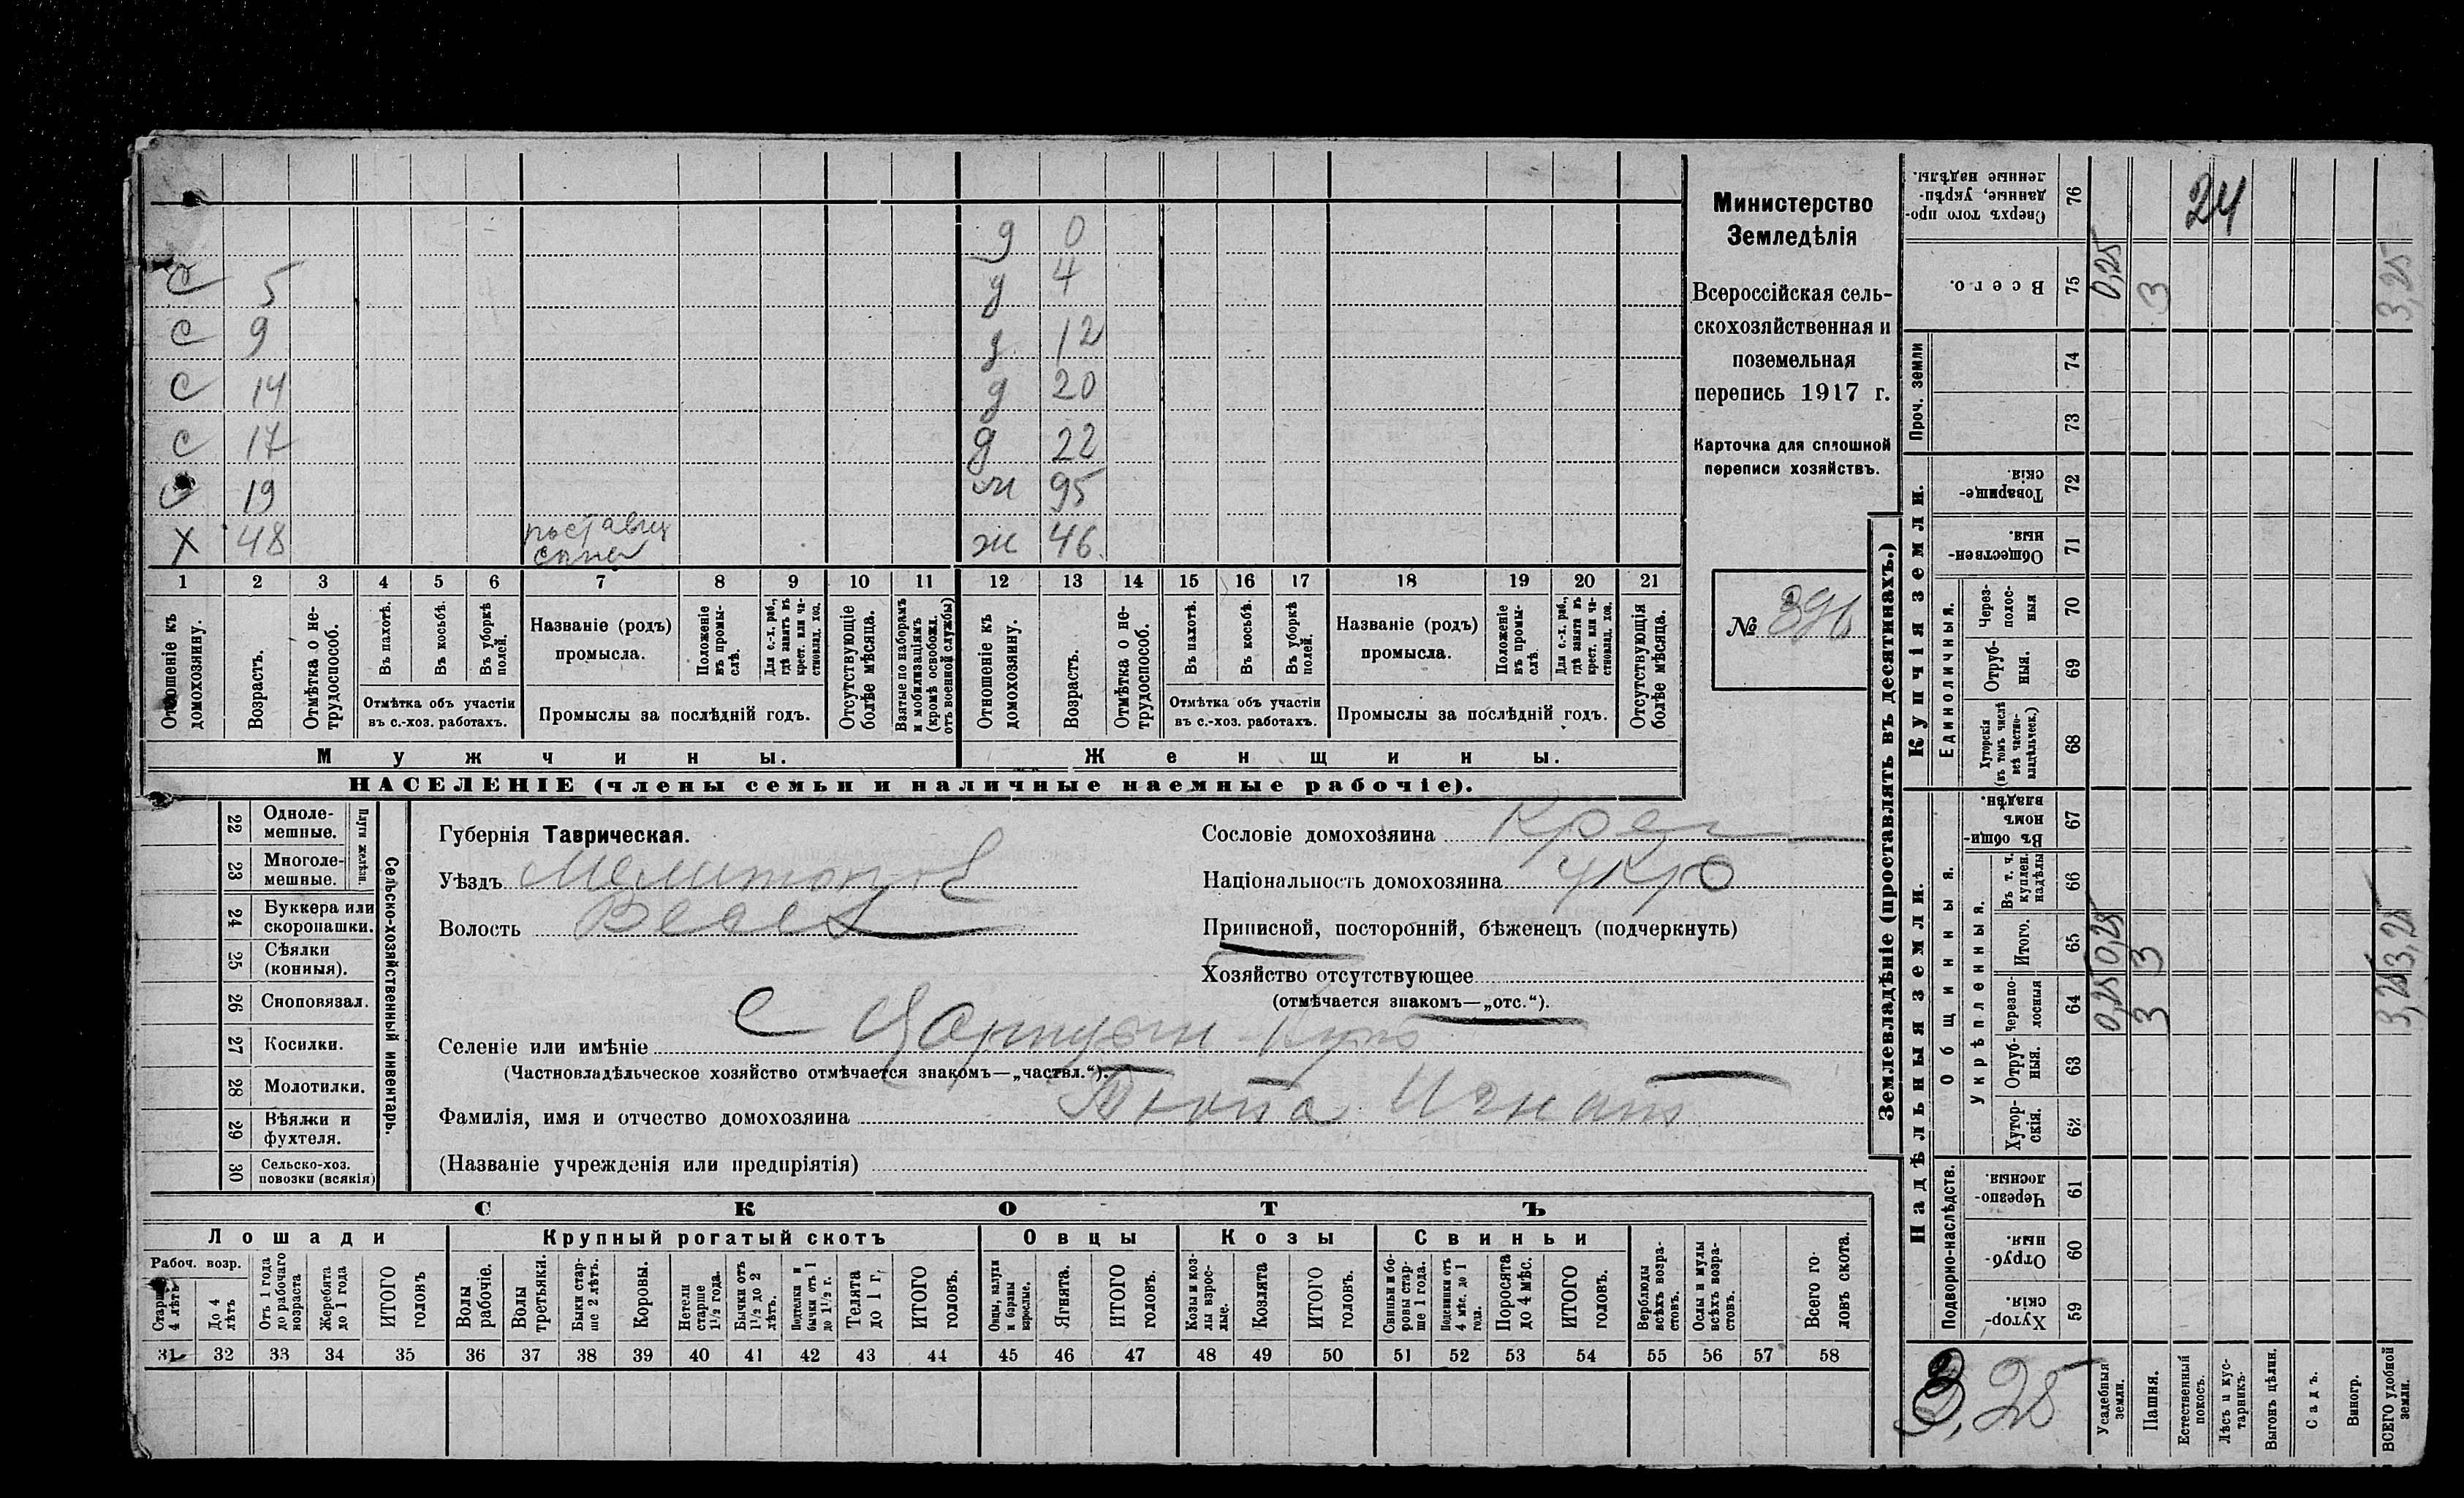 д 0
с 5 д 4
с 9 д 12
с 14 д 20
с 17 д 22
с 19 м 95
х 48 поставщ ж 46
сына
1 2 3 4 5 6 7 8 9 10 11 12 13 14 15 16 17 18 19 20 21
Отношеніе къ домохозяину.
Возрастъ.
Отмѣтка о не-трудоспособ.
Въ пахотѣ.
Въ косьбѣ.
Въ уборкѣ полей.
Отмѣтка объ участіи
въ с.-хоз. работахъ.
Названіе (родъ)
промысла.
Положеніе въ промы-слѣ.
Для с.-х. раб., гдѣ занятъ въ крест. или ча-стновлад. хоз.
Промыслы за послѣдній годъ.
Отсутствующіе болѣе мѣсяца.
Взятые по наборамъ и мобилизаціямъ (кромѣ освобожд. отъ военной службы)
Отношеніе къ домохозяину.
Возрастъ.
Отмѣтка о не-трудоспособ.
Въ пахотѣ.
Въ косьбѣ.
Въ уборкѣ полей.
Отмѣтка объ участіи
въ с.-хоз. работахъ.
Названіе (родъ)
промысла.
Положеніе въ промы-слѣ.
Для с.-х. раб., гдѣ занята въ крест. или ча-стновлад. хоз.
Промыслы за послѣдній годъ.
Отсутствующія болѣе мѣсяца.
Мужчины. Женщины.
НАСЕЛЕНІЕ (члены семьи и наличные наемные рабочіе).
Министерство
Земледѣлія
Всероссійская сель-
скохозяйственная и
поземельная
перепись 1917 г.
Карточка для сплошной
переписи хозяйствъ.
№ 396
22 Одноле-мешные.
23 Многоле-мешные.
Плуги желѣзн.
24 Буккера или скоропашки.
25 Сѣялки (конныя).
26 Сноповязал.
27 Косилки.
28 Молотилки.
29 Вѣялки и фухтеля.
30 Сельско-хоз. повозки (всякія)
Сельско-хозяйственный инвентарь.
Губернія Таврическая.
Уѣздъ Мелитоп
Волость Весел
Сословіе домохозяина Крес
Національность домохозяина укр
Приписной, посторонній, бѣженецъ (подчеркнуть)
Хозяйство отсутствующее
(отмѣчается знакомъ—„отс.“).
Селеніе или имѣніе с Царицын Кут
(Частновладѣльческое хозяйство отмѣчается знакомъ—„частвл.“).
Фамилія, имя и отчество домохозяина Игнат
(Названіе учрежденія или предпріятія)
СКОТЪ
Лошади Крупный рогатый скотъ Овцы Козы Свиньи
Рабоч. возр.
Старше 4 лѣтъ
До 4 лѣтъ
Отъ 1 года до рабочаго возраста
Жеребята до 1 года
ИТОГО головъ
Волы рабочіе.
Волы третьяки.
Быки стар-ше 2 лѣтъ.
Коровы.
Нетели старше 1½ года.
Бычки отъ 1½ до 2 лѣтъ.
Подтелки и бычки отъ 1 до 1½ г.
Телята до 1 г.
ИТОГО головъ.
Овцы, валухи и бараны взрослые.
Ягнята.
ИТОГО головъ.
Козы и коз-лы взрос-лые.
Козлята
ИТОГО головъ.
Свиньи и бо-ровы стар-ше 1 года.
Подсвинки отъ 4 мѣс. до 1 года.
Поросята до 4 мѣс.
ИТОГО головъ.
Верблюды всѣхъ возра-стовъ.
Ослы и мулы всѣхъ возра-стовъ.
Всего го-ловъ скота.
31 32 33 34 35 36 37 38 39 40 41 42 43 44 45 46 47 48 49 50 51 52 53 54 55 56 57 58
Землевладѣніе (проставлять въ десятинахъ.)
Надѣльныя земли. Купчія земли. Проч. земли
Подворно-наслѣдств.
Общинныя.
Укрѣпленныя.
Единоличныя.
Сверхъ того про-данные, укрѣп-ленные надѣлы. 76 24
Всего. 75 0,25 3 3,25
74
73
Товарище-скія 72
Обществен-ныя. 71
Через-полос-ныя 70
Отруб-ныя. 69
Хуторскія (въ томъ числѣ всѣ частно-владѣльческ.) 68
Въ общи-номъ владѣн. 67
Въ т. ч. куплен. надѣлы 66
Итого. 65 0,25 3 3,25
Черезпо-лосныя 64 0,25 3 3,25
Отруб-ныя. 63
Хутор-скія. 62
Черезпо-лосныя 61
Отруб-ныя. 60
Хутор-скія. 59
3,25
Усадебныя земли.
Пашня.
Естественный покосъ.
Лѣсъ и кус-тарникъ.
Выгонъ цѣлин.
Садъ.
Виногр.
ВСЕГО удобной земли.